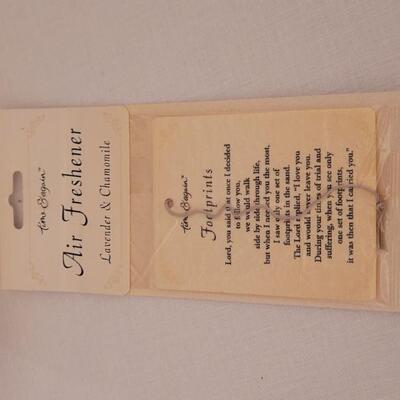 time & again™
Air Freshener
Lavender & Chamomile
time & again™
Footprints
Lord, you said that once I decided
to follow you,
we would walk
side by side through life,
but when I needed you the most,
I saw only one set of
footprints in the sand.
The Lord replied, "I love you
and would never leave you.
During your times of trial and
suffering, when you see only
one set of footprints,
it was then that I carried you."